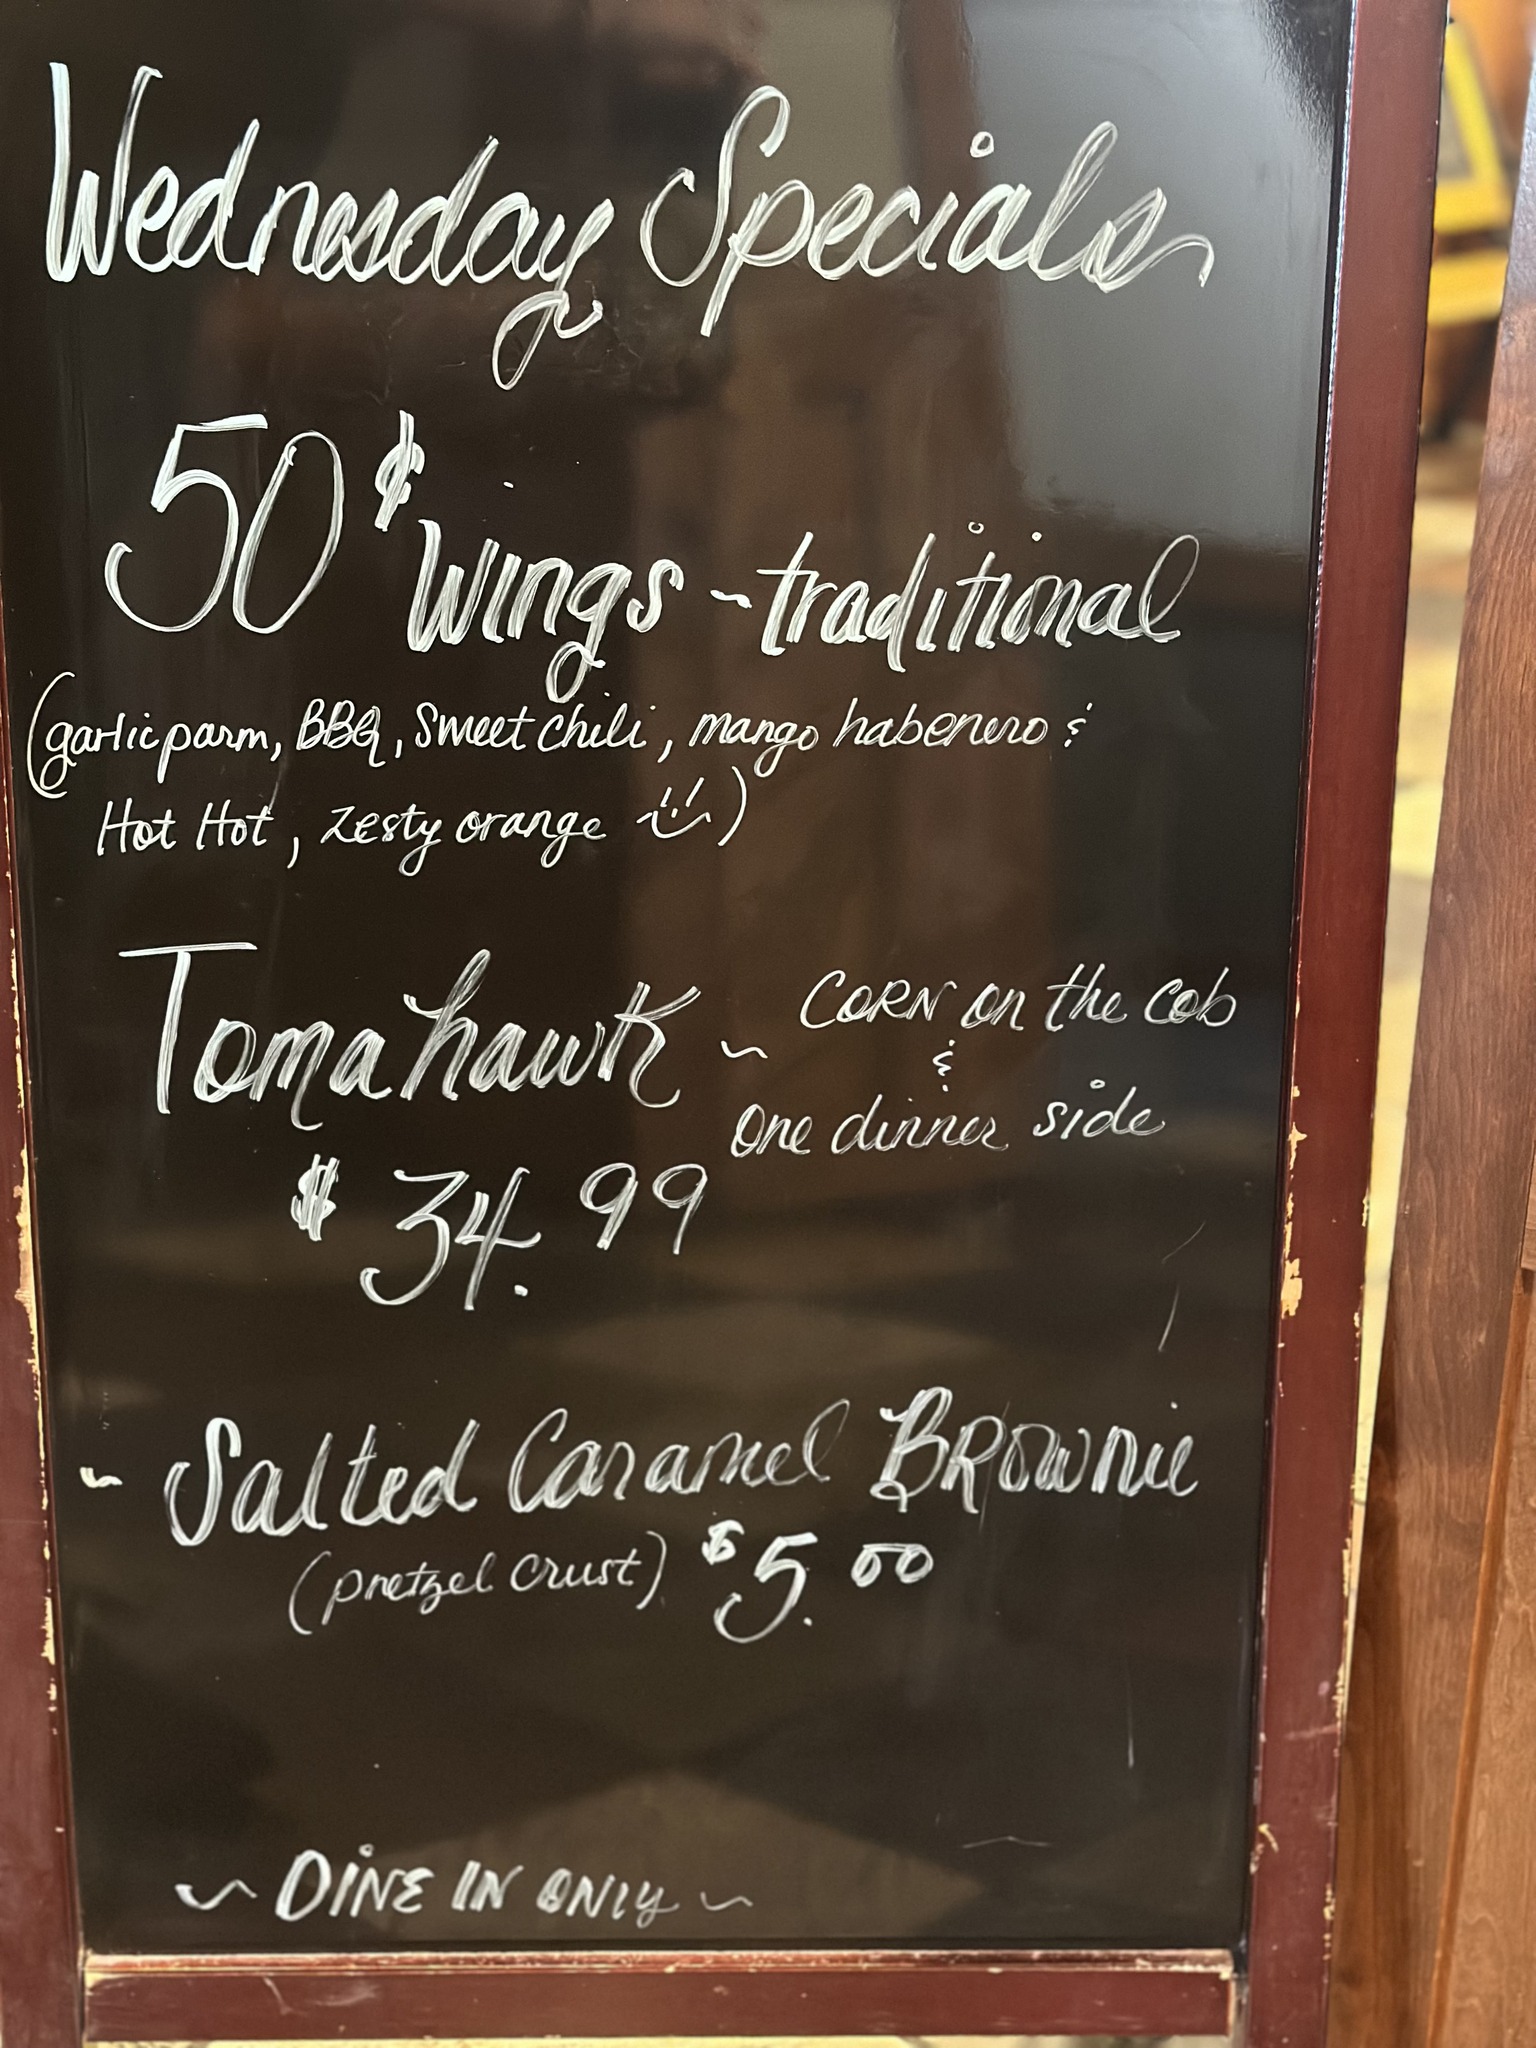 Wednesday Specials
50¢ Wings ~ traditional
(garlic parm, BBQ, Sweet Chili, mango habenero &
Hot Hot, zesty orange)
Tomahawk ~ Corn on the Cob
&
one dinner side
$34.99
~ Salted Caramel Brownie
(pretzel crust) $5.00
~ DINE IN ONLY ~